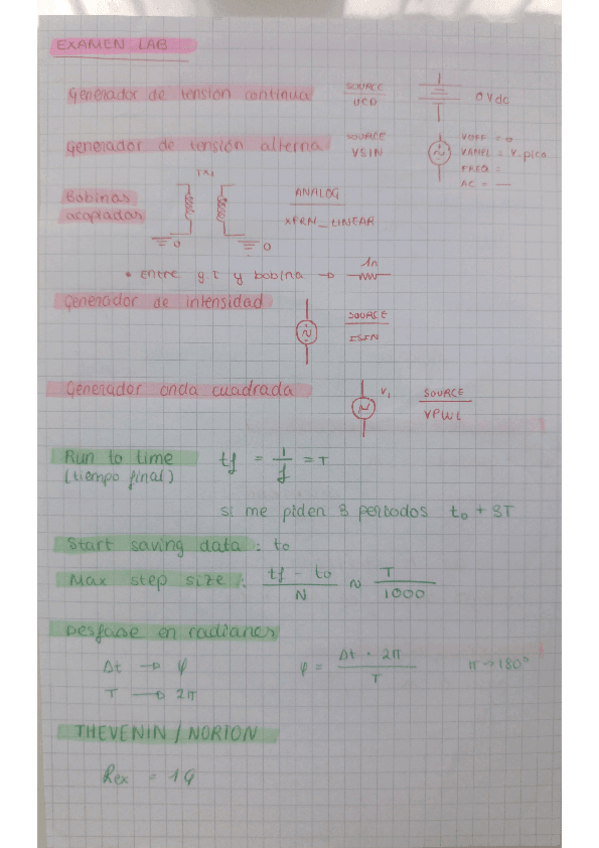 EXAMEN LAB
Generador de tension continua
SOURCE
VCD
0Vdc
Generador de tensión alterna
SOURCE
VSIN
VOFF = 0
VAMPL = V.pico
FREQ =
AC = —
Bobinas
acopladas
TX1
0
0
ANALOG
XFRN_LINEAR
• Entre g.t y bobina → 1n
Generador de intensidad
SOURCE
ISIN
Generador onda cuadrada
V1
SOURCE
VPWL
Run to time
(tiempo final)
tf = 1/f = T
si me piden 3 periodos t0 + 3T
Start saving data : t0
Max step size : (tf - t0)/N ~ T/1000
Desfase en radianes
Δt → φ
T → 2π
φ = Δt · 2π / T
π → 180°
THEVENIN / NORTON
Rex = 1G